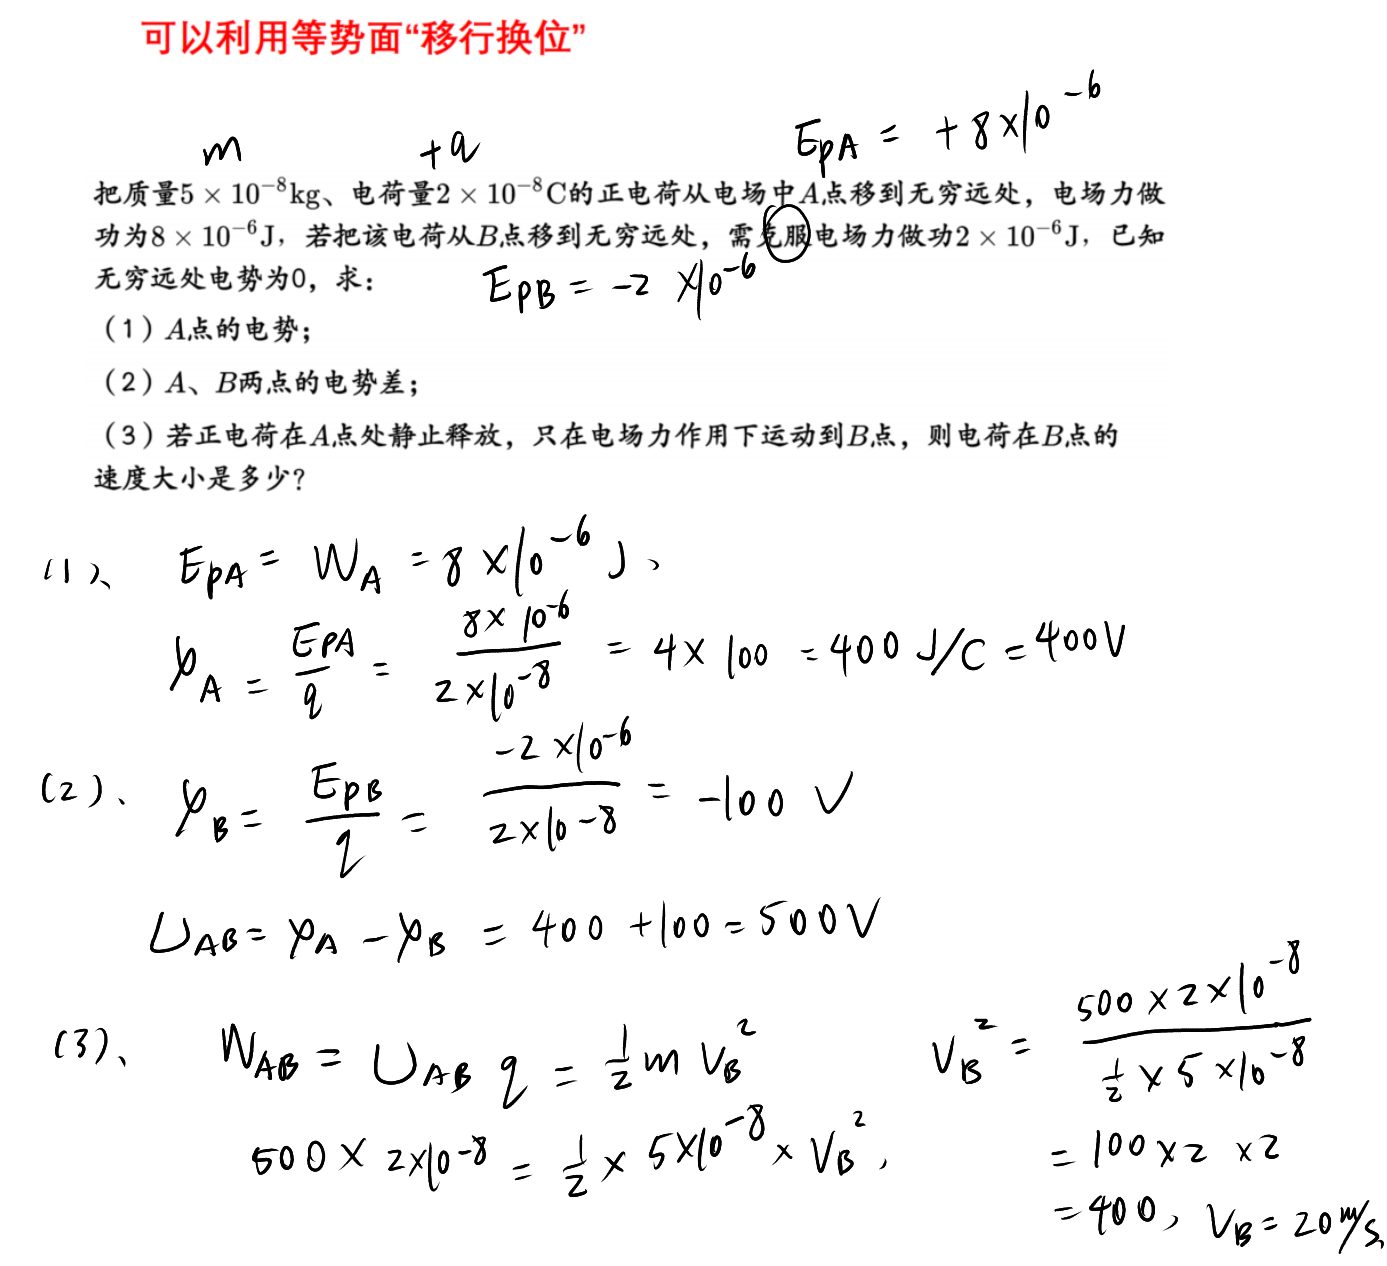 可以利用等势面“移行换位”
m +q E_{pA} = +8×10^{-6}
把质量5 × 10^{-8}kg、电荷量2 × 10^{-8}C的正电荷从电场中A点移到无穷远处，电场力做
功为8 × 10^{-6}J，若把该电荷从B点移到无穷远处，需克服电场力做功2 × 10^{-6}J，已知
无穷远处电势为0，求：
E_{pB} = -2 ×10^{-6}
（1）A点的电势；
（2）A、B两点的电势差；
（3）若正电荷在A点处静止释放，只在电场力作用下运动到B点，则电荷在B点的
速度大小是多少？
(1)、 E_{pA} = W_A = 8×10^{-6} J、
φ_A = \frac{E_{PA}}{q} = \frac{8×10^{-6}}{2×10^{-8}} = 4×100 = 400 J/C = 400V
(2)、 φ_B = \frac{E_{pB}}{q} = \frac{-2×10^{-6}}{2×10^{-8}} = -100 V
U_{AB} = φ_A - φ_B = 400 +100 = 500V
(3)、 W_{AB} = U_{AB} q = \frac{1}{2} m V_B^2
500× 2×10^{-8} = \frac{1}{2} × 5×10^{-8} × V_B^2,
V_B^2 = \frac{500×2×10^{-8}}{\frac{1}{2}×5×10^{-8}}
= 100×2 ×2
= 400, V_B = 20 m/s,